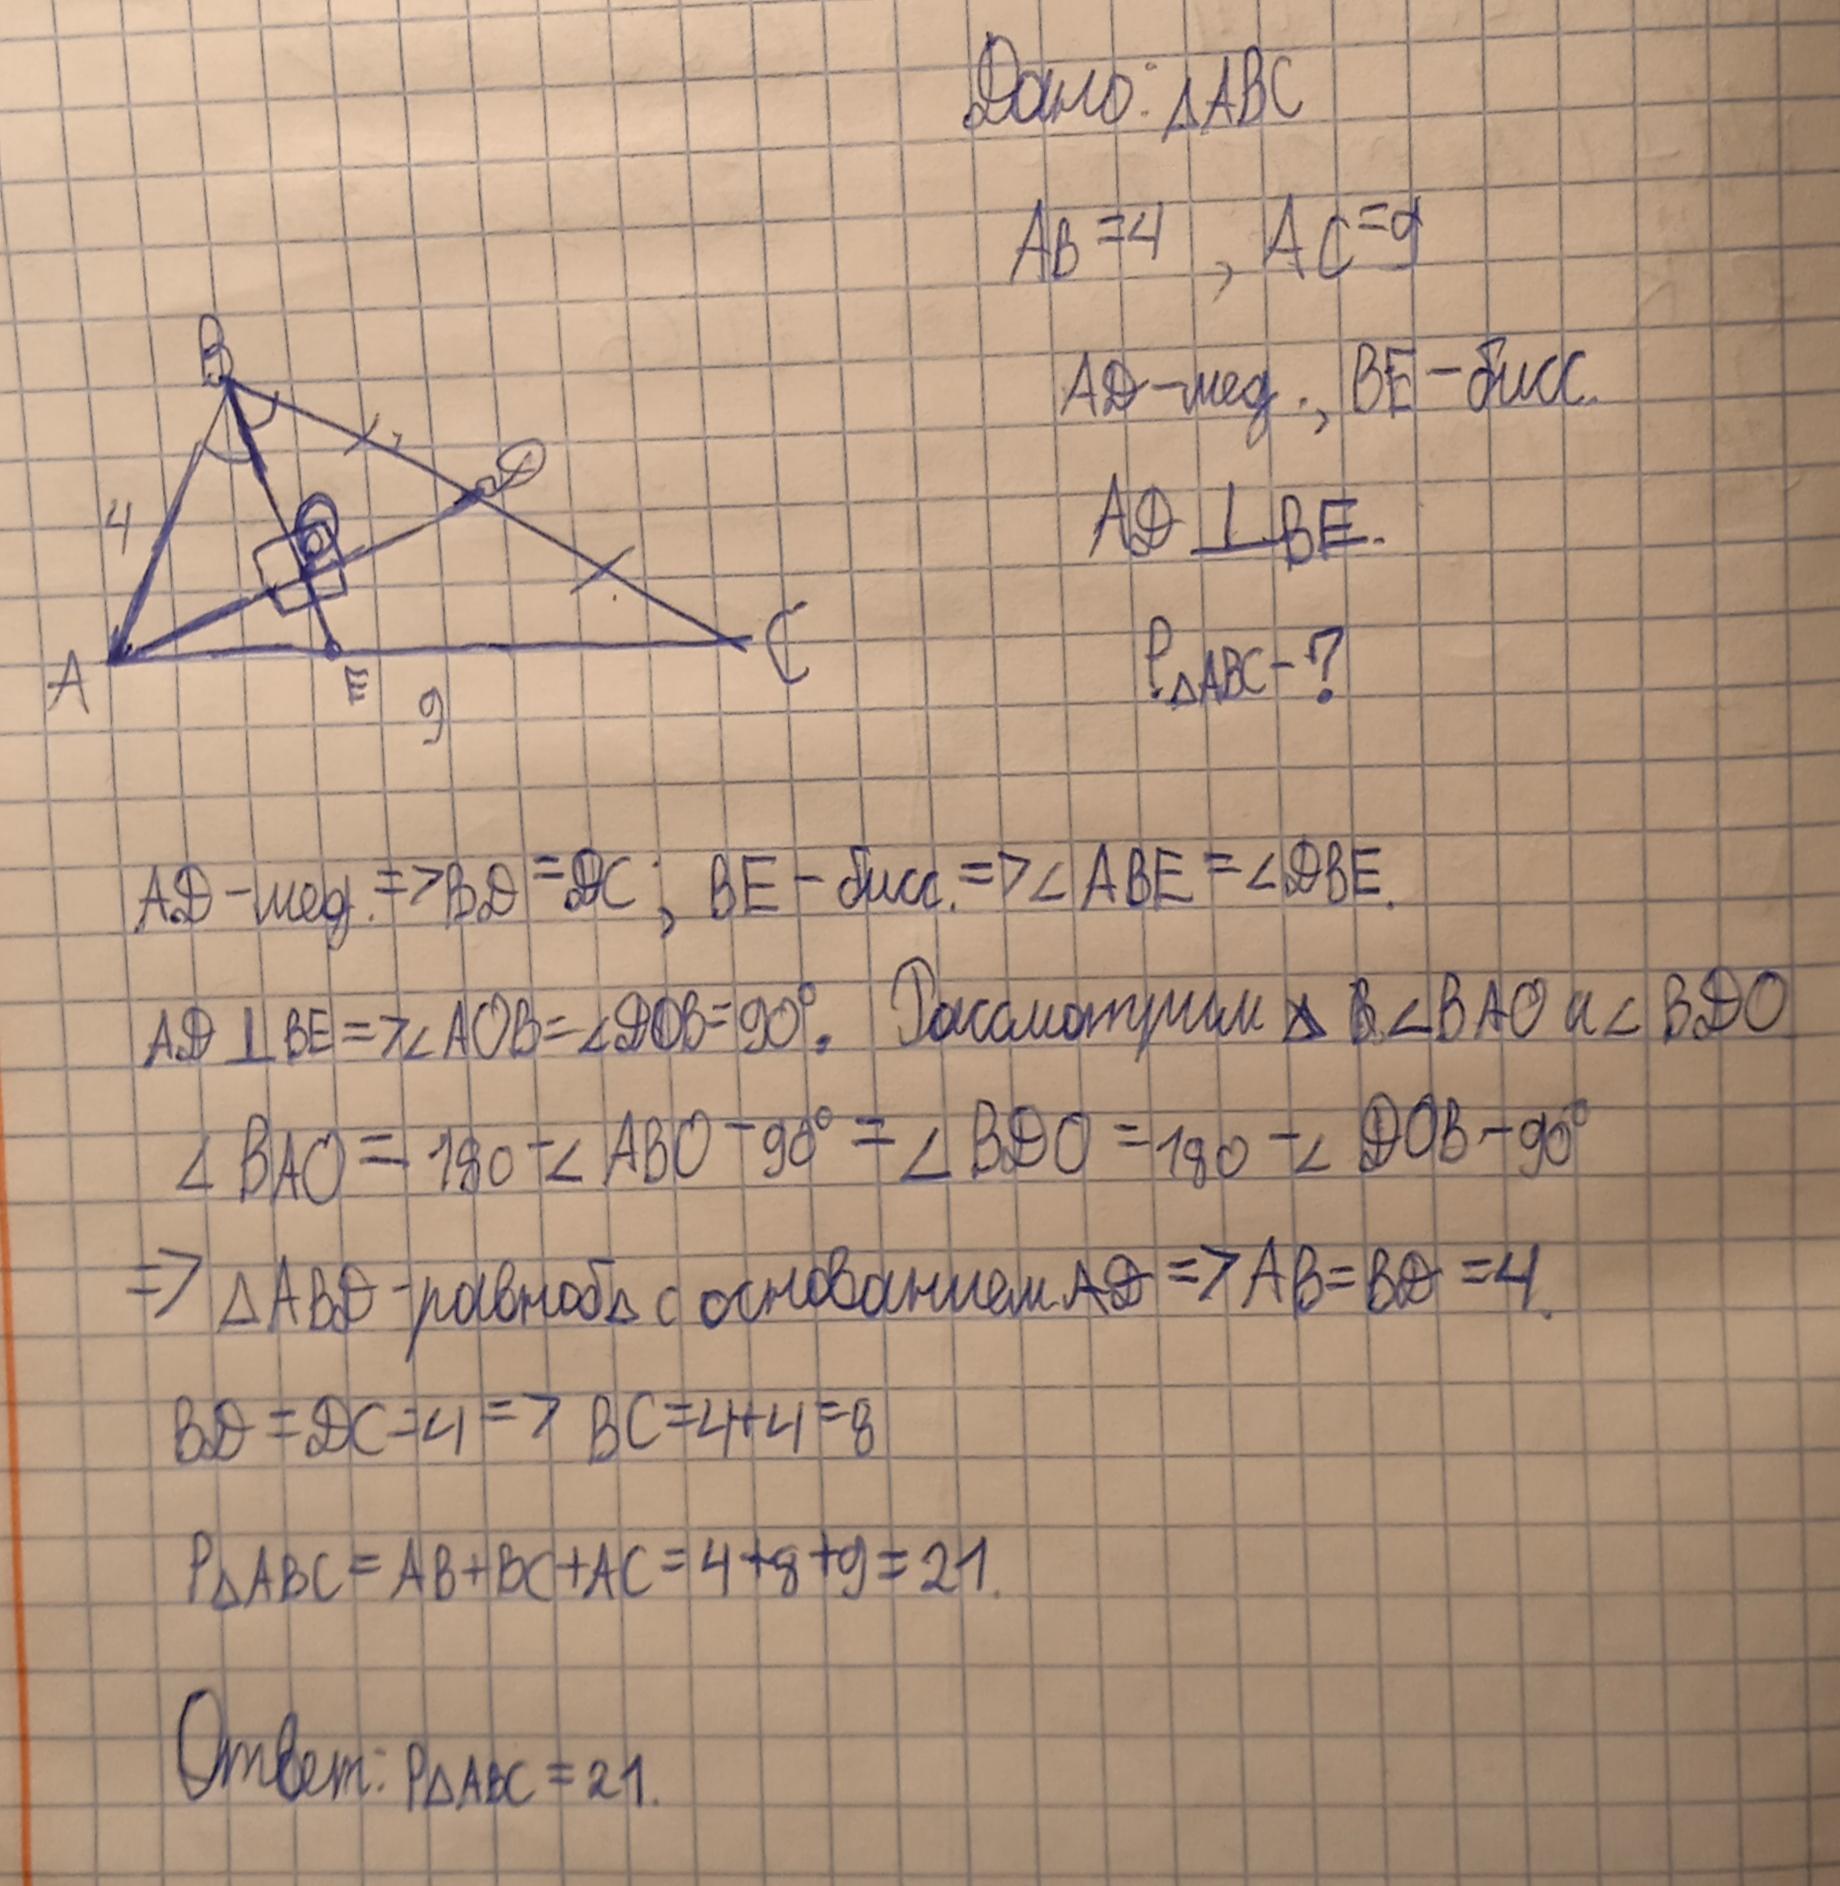 Дано: △ABC
AB=4, AC=9
AD-мед., BE-бисс.
AD⊥BE.
P△ABC-?
B
D
4
O
A
E
C
9
AD-мед.=>BD=DC; BE-бисс.=>∠ABE=∠DBE.
AD⊥BE=>∠AOB=∠DOB=90°. Рассмотрим △ В ∠BAO и ∠BDO
∠BAO=180-∠ABO-90°=∠BDO=180-∠DOB-90°
=>△ABD-равноб△ с основанием AD=>AB=BD=4.
BD=DC=4=>BC=4+4=8
P△ABC=AB+BC+AC=4+8+9=21.
Ответ: P△ABC=21.